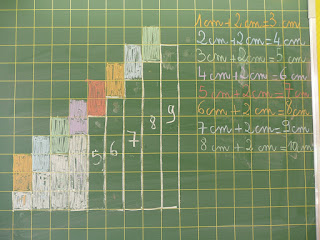 1cm+2cm=3 cm
2cm+2cm=4cm
3cm+2cm=5 cm
4cm+2cm=6 cm
5cm+2cm=7cm
6cm+2cm=8cm
7cm+2cm=9cm
8cm+2cm=10cm
5 6 7 8 9